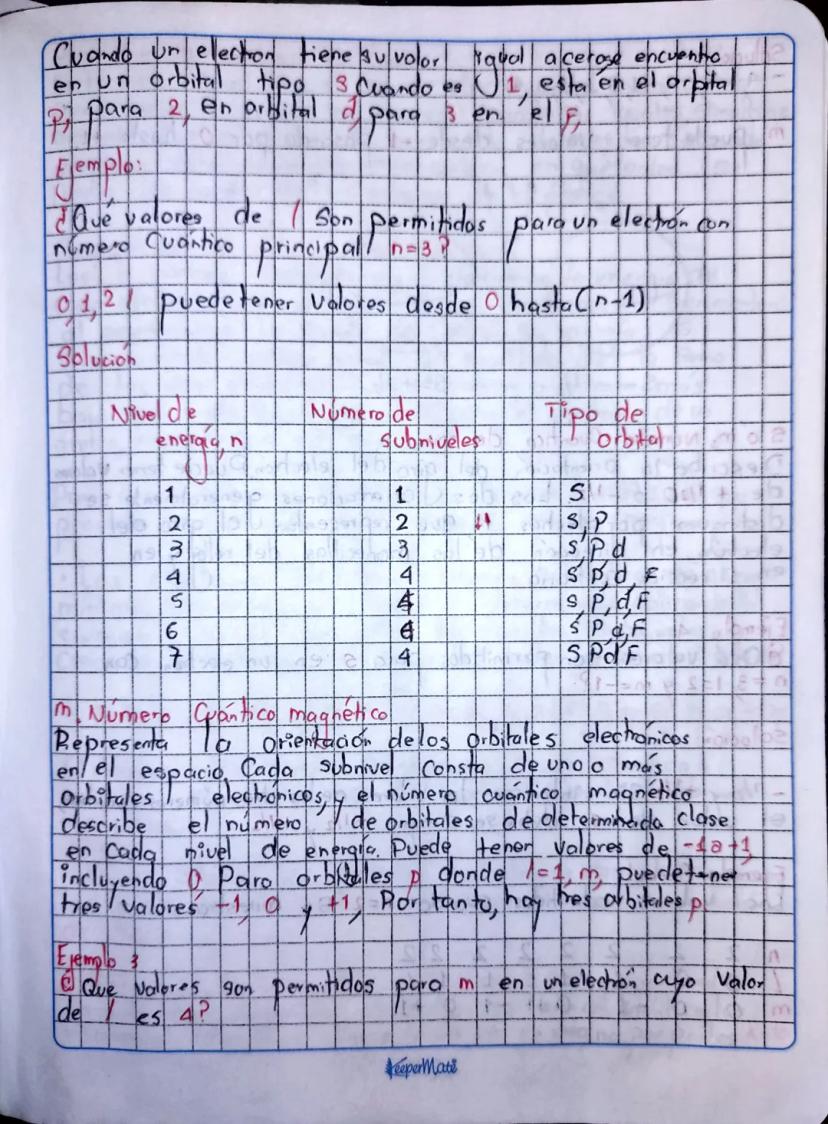 Cuando un electron tiene su valor igual a cero se encuentra
en un orbital tipo s cuando es 1, esta en el orbital
p, para 2, en orbital d, para 3 en el F,
Ejemplo:
¿Qué valores de l son permitidos para un electrón con
número Cuántico principal n=3?
0, 1, 2 l puede tener valores desde 0 hasta (n-1)
Solución
Nivel de energía, n Número de subniveles Tipo de orbital
1 1 S
2 2 S, P
3 3 S, P d
4 4 S, P, d, F
5 4 S, P, d, F
6 4 S P d, F
7 4 S P d F
m, Número Cuántico magnético
Representa la orientación de los orbitales electrónicos
en el espacio. Cada subnivel consta de uno o más
orbitales electrónicos, y el número cuántico magnético
describe el número de orbitales de determinada clase
en cada nivel de energía. Puede tener valores de -1 a +1,
incluyendo 0, Para orbitales p donde l=1, m, puede tener
tres valores -1, 0 y +1, Por tanto, hay tres orbitales p.
Ejemplo 3
¿Que valores son permitidos para m en un electrón cuyo valor
de l es 4?
KeeperMate